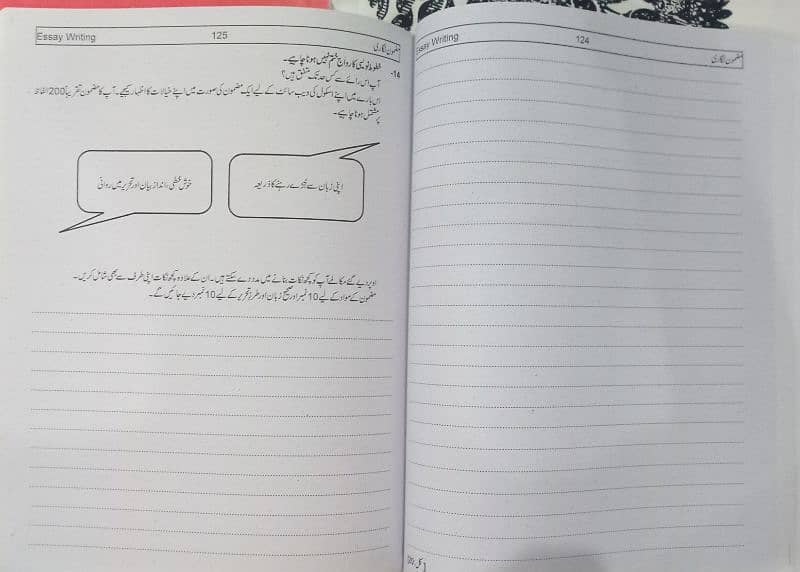 Essay Writing 125 مضمون نگاری
14- خطوط نویسی کا رواج ختم نہیں ہونا چاہیے۔
آپ اس رائے سے کس حد تک متفق ہیں؟
اس بارے میں اپنے اسکول کی ویب سائٹ کے لیے ایک مضمون کی صورت میں اپنے خیالات کا اظہار کیجیے۔ آپ کا مضمون تقریباً 200 الفاظ
پر مشتمل ہونا چاہیے۔
اپنی زبان سے جُڑے رہنے کا ذریعہ
خوش خطی، انداز بیان اور تحریر میں روانی
اوپر دیے گئے مکالمے آپ کو کچھ نکات بنانے میں مدد دے سکتے ہیں۔ ان کے علاوہ کچھ نکات اپنی طرف سے بھی شامل کریں۔
مضمون کے مواد کے لیے 10 نمبر اور صحیح زبان اور طرز تحریر کے لیے 10 نمبر دیے جائیں گے۔
Essay Writing 124 مضمون نگاری
[کل: 20]